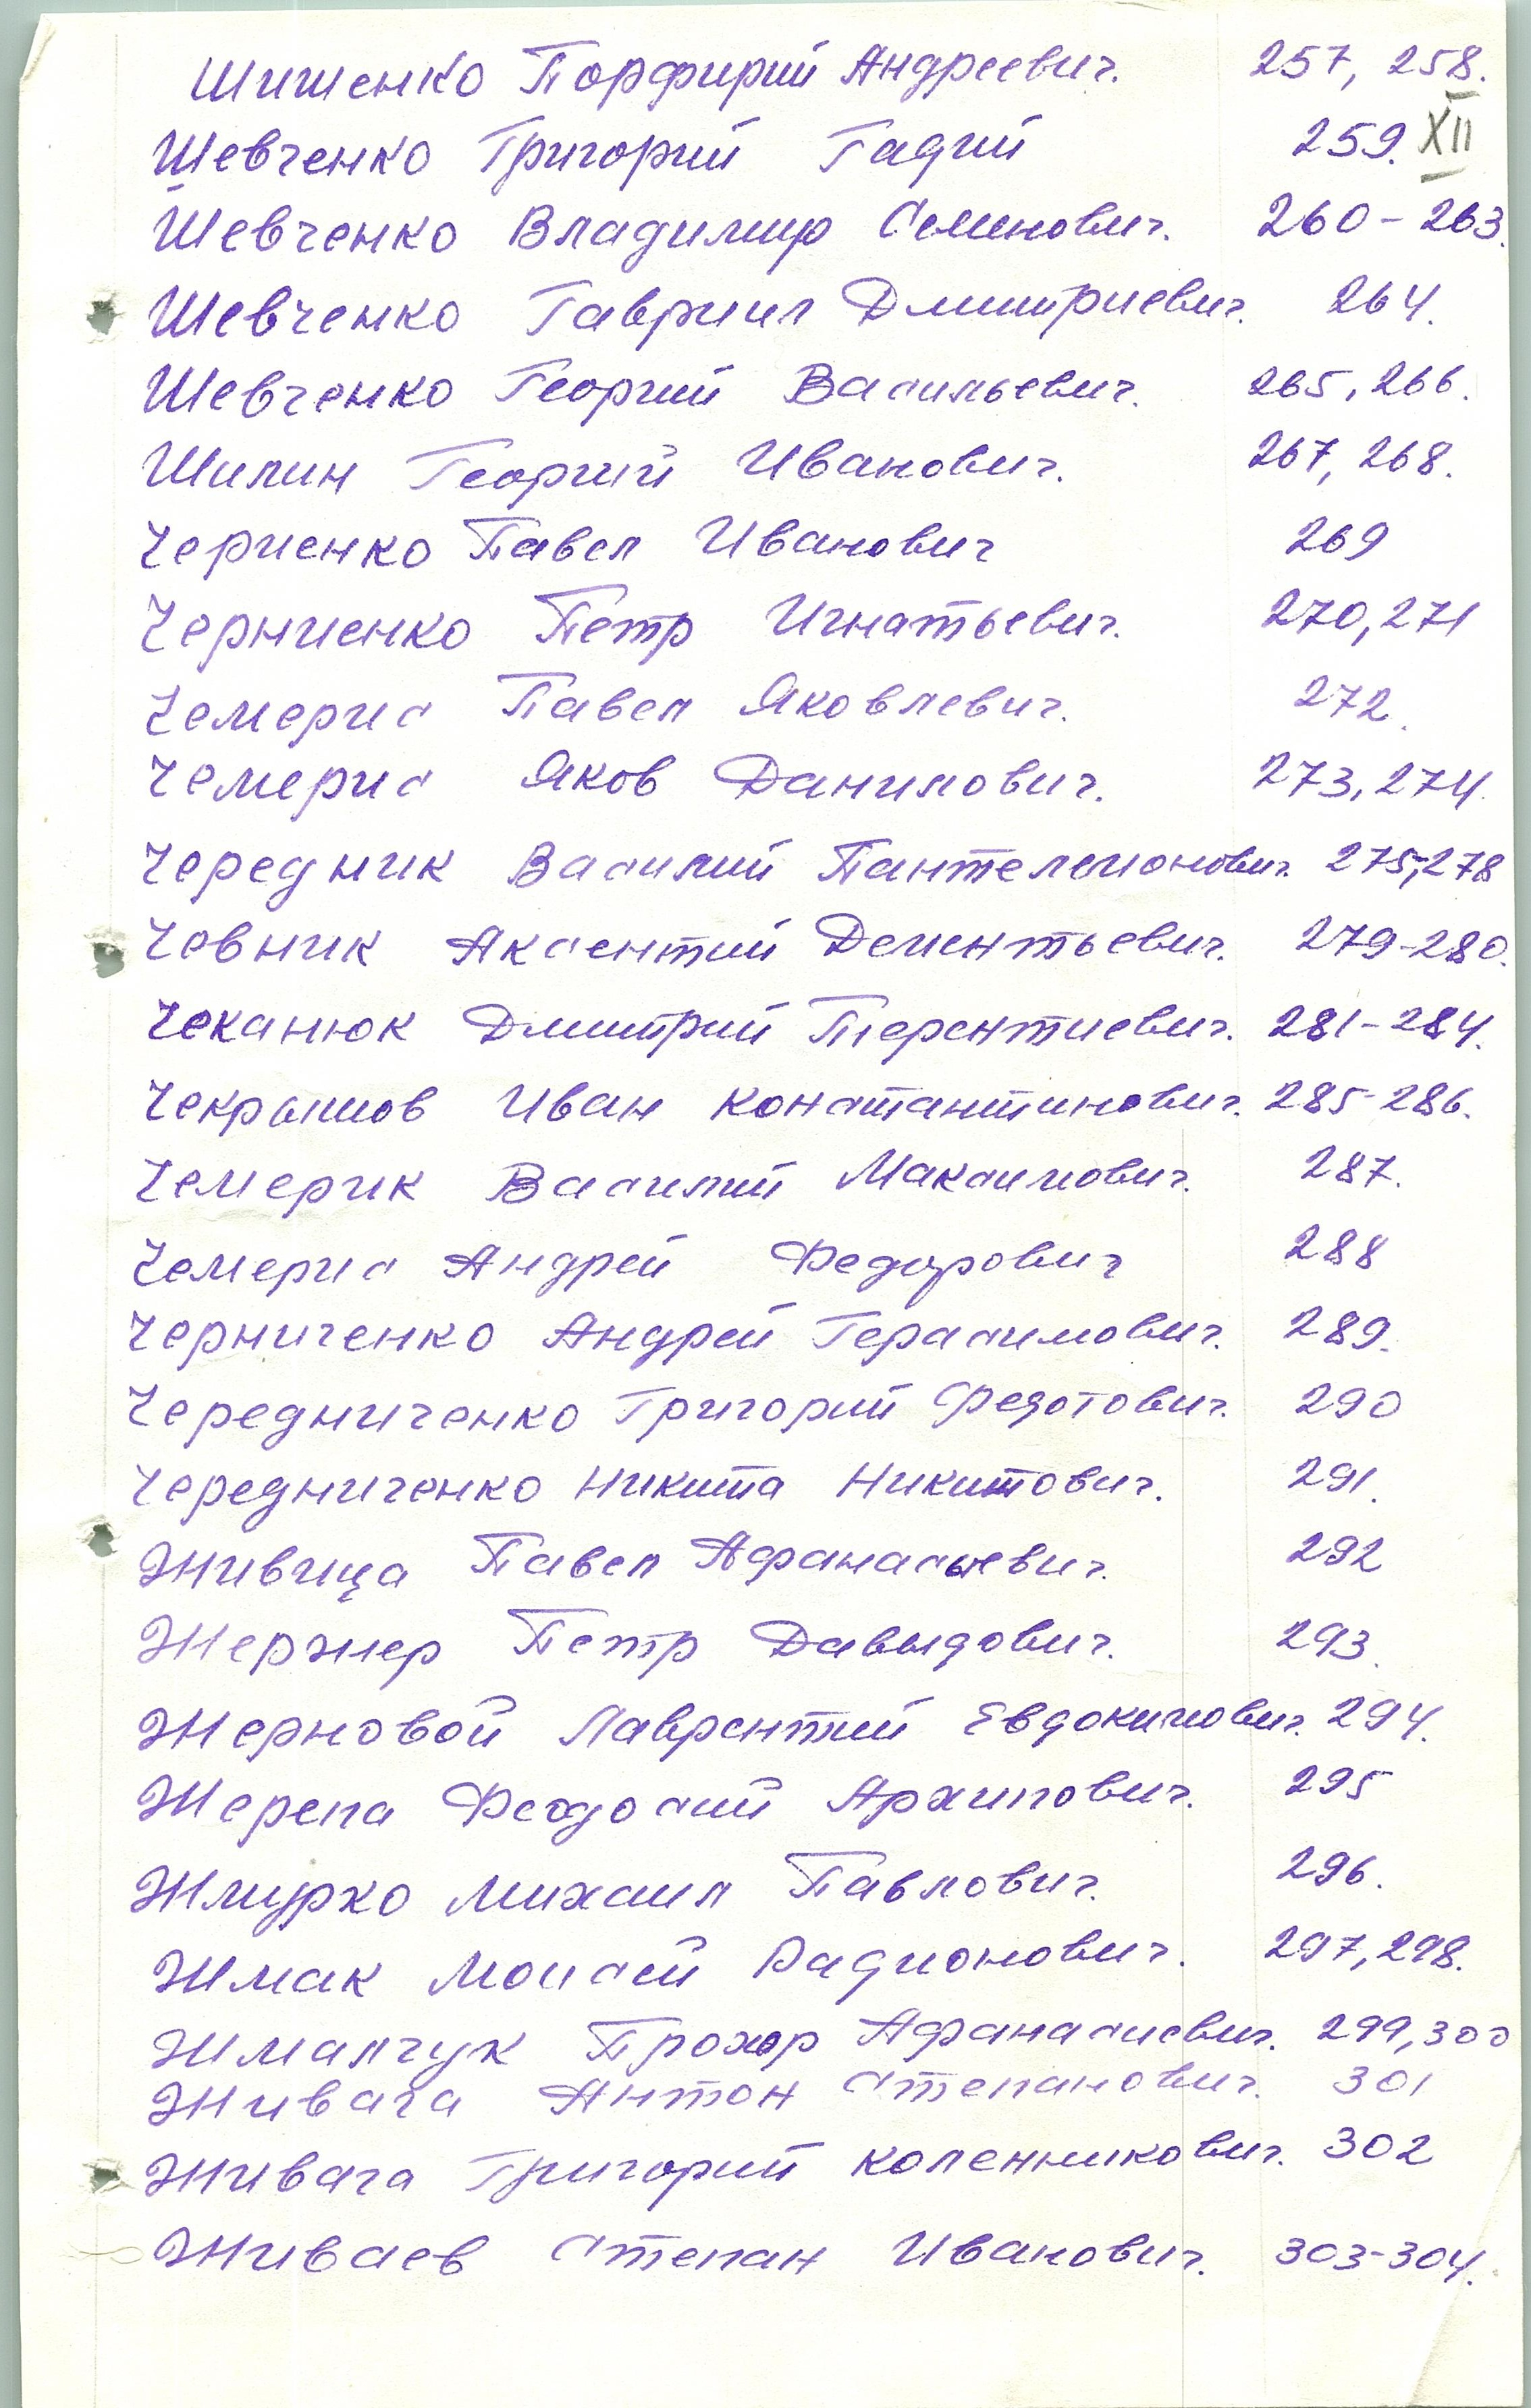 Шишенко Порфирий Андреевич. 257, 258.
Шевченко Григорий Гадий 259. XII
Шевченко Владимир Семенович. 260-263.
Шевченко Гавриил Дмитриевич. 264.
Шевченко Георгий Васильевич. 265, 266.
Шилин Георгий Иванович. 267, 268.
Чериенко Павел Иванович 269
Черниенко Петр Игнатьевич. 270, 271
Чемерис Павел Яковлевич. 272.
Чемерис Яков Данилович. 273, 274.
Чередник Василий Пантелемонович. 275,278
Човник Аксентий Дементьевич. 279-280.
Чеканюк Дмитрий Терентиевич. 281-284.
Чекрышов Иван Константинович. 285-286.
Чемерик Василий Максимович. 287.
Чемерис Андрей Федорович 288
Черниченко Андрей Герасимович. 289.
Чередниченко Григорий Федотович. 290
Чередниченко Никита Никитович. 291.
Живица Павел Афанасьевич. 292
Жержер Петр Давыдович. 293.
Жерновой Лаврентий Евдокимович. 294.
Жерепа Феодосий Архипович. 295
Жмурко Михаил Павлович. 296.
Жмак Моисей Радионович. 297, 298.
Жмапчук Прохор Афанасиевич. 299, 300
Живага Антон Степанович. 301
Живага Григорий Коленникович. 302
Живаев Степан Иванович. 303-304.